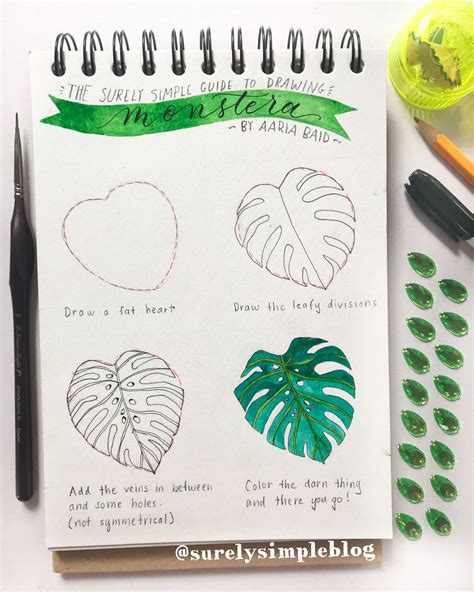 THE SURELY SIMPLE GUIDE TO DRAWING
monstera
~ BY AARIA BAID ~
Draw a fat heart
Draw the leafy divisions
Add the veins in between
and some holes.
(not symmetrical)
Color the darn thing
and there you go!
@surelysimpleblog